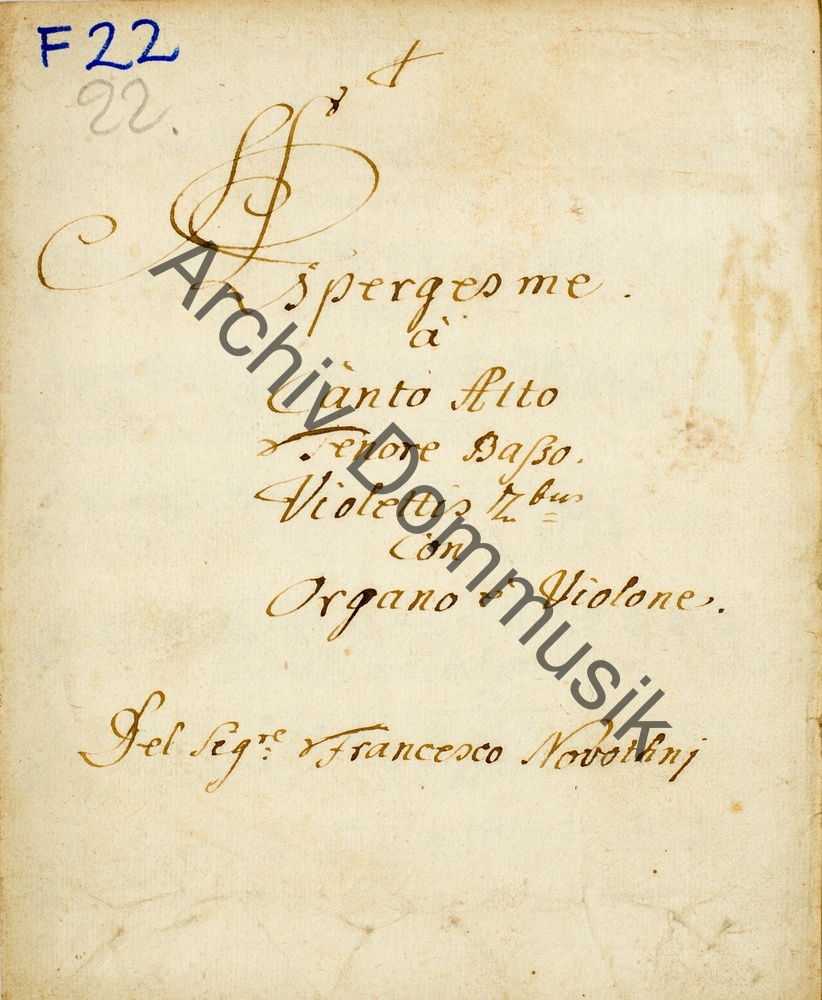 F 22
22.
Asperges me.
à
Canto Alto
Tenore Baßo.
Violettis 2bus
Con
Organo è Violone.
Del Sigre: Francesco Novothnj
Archiv Dommusik